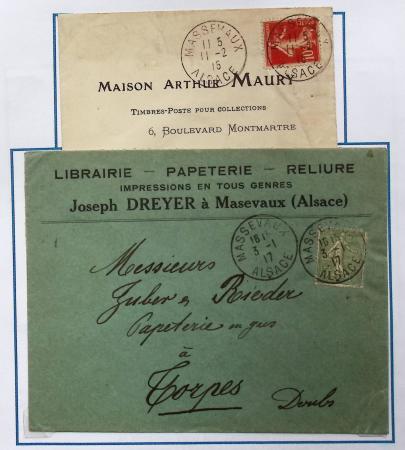 MASSEVAUX
11 5
11 -2
15
ALSACE
MAISON ARTHUR MAURY
TIMBRES-POSTE POUR COLLECTIONS
6, BOULEVARD MONTMARTRE
LIBRAIRIE — PAPETERIE — RELIURE
IMPRESSIONS EN TOUS GENRES
Joseph DREYER à Masevaux (Alsace)
MASSEVAUX
3 -1
17
ALSACE
MASSEVAUX
17
ALSACE
Messieurs
Zuber & Rieder
Papeterie en gros
à
Torpes
Doubs